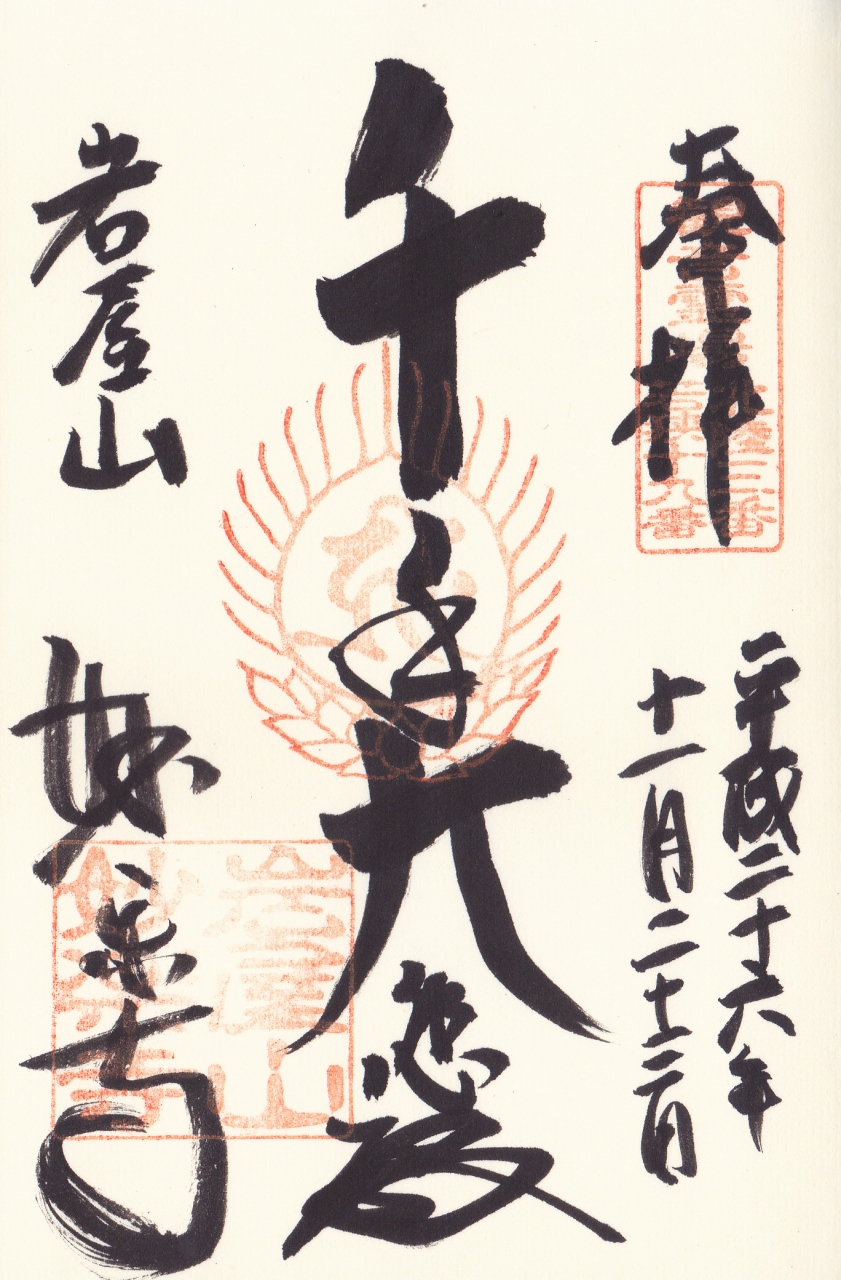 奉拝
平成二十六年
十一月二十三日
千手大悲殿
岩屋山
妙楽寺
岩屋山
妙楽寺